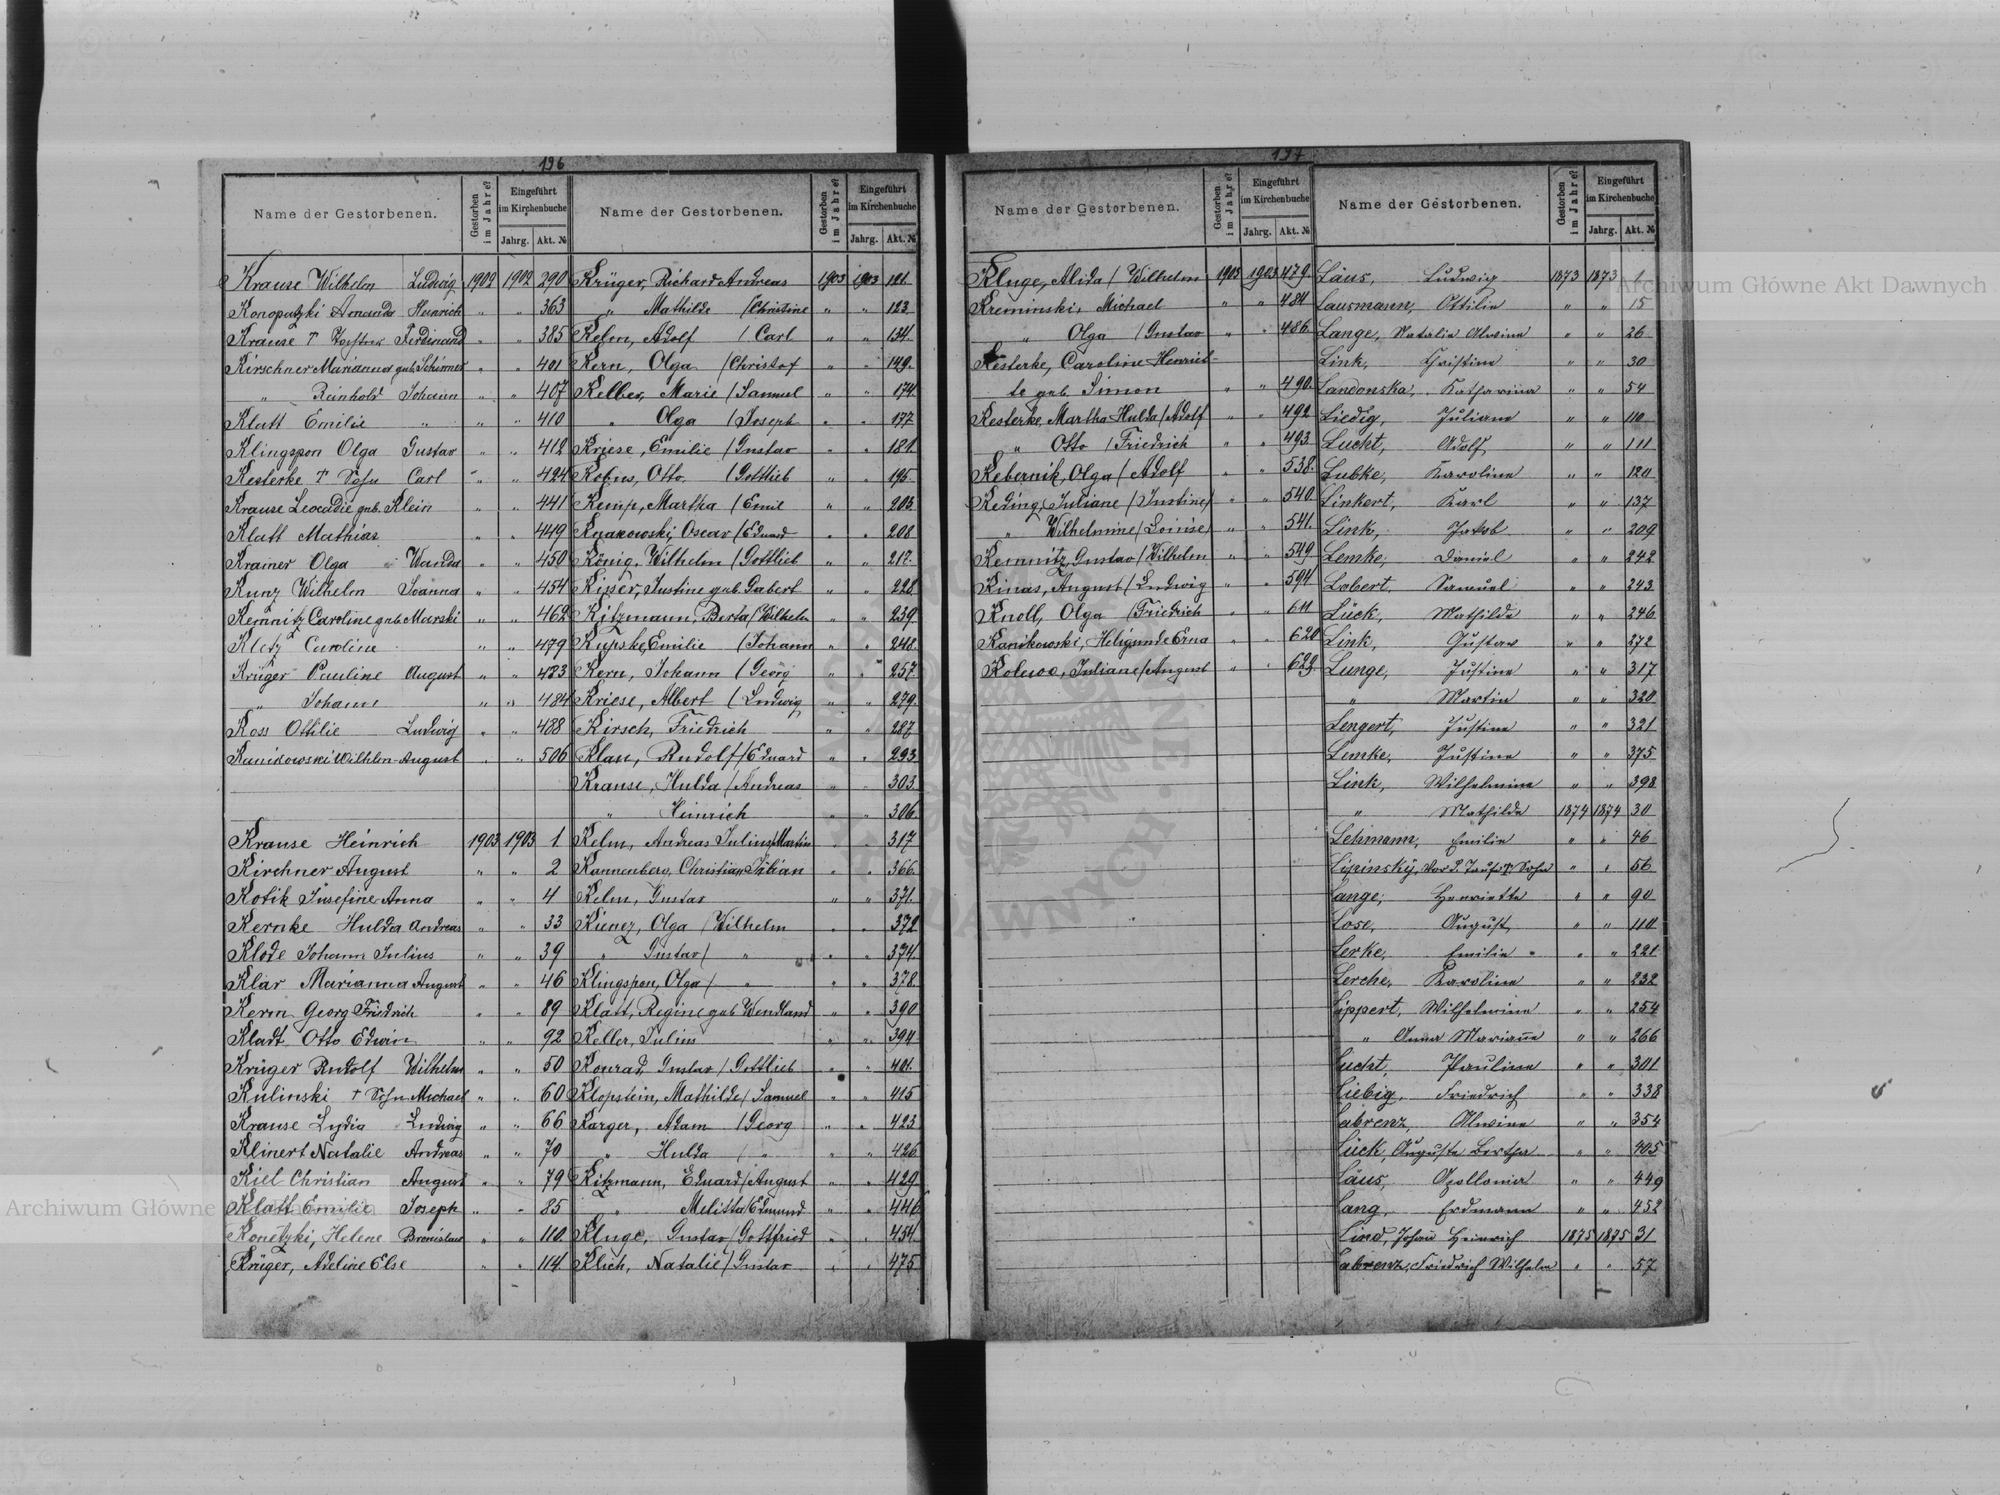 196
Name der Gestorbenen. Gestorben im Jahre? Eingeführt im Kirchenbuche Jahrg. Akt. №
Krause Wilhelm Ludwig 1902 1902 290
Konopatzki Heinrich " " 363
Krause † Ferdinand " " 385
Kirschner Marianna geb. Schirmer " " 401
" Reinhold Johann " " 407
Klatt Emilie " " " 410
Klingspon Olga Gustav " " 412
Kesterke † Sohn Carl " " 424
Krause Leocadie geb. Klein " " 441
Klatt Mathias " " 449
Krainer Olga Wanda " " 450
Kunz Wilhelm Joanna " " 454
Kemnitz Caroline geb. Marski " " 462
Kletz Caroline " " 479
Krüger Pauline August " " 483
" Johann " " 484
Koss Ottilie Ludwig " " 488
Kanikowski Wilhlm August " " 506
Krause Heinrich 1903 1903 1
Kirchner August " " 2
Kotik Josefine Anna " " 4
Kernke Hulda Andreas " " 33
Klode Johann Julius " " 39
Klar Marianna August " " 46
Kerm Georg Friedrich " " 89
Kladt Otto Edwin " " 92
Krüger Rudolf Wilhelm " " 50
Kulinski † Sohn Michael " " 60
Krause Lydia Ludwig " " 66
Klinert Natalie Andreas " " 70
Kiel Christian August " " 79
Klatt Emilie Joseph " " 85
Konetzki, Helene Bronislaw " " 110
Krüger, Adeline Else " " 114
Name der Gestorbenen. Gestorben im Jahre? Eingeführt im Kirchenbuche Jahrg. Akt. №
Krüger, Richard Andreas 1903 1903 121
" Mathilde / Christine " " 123
Kelm, Adolf / Carl " " 134
Kern, Olga / Christof " " 149
Keller, Marie / Samuel " " 174
" Olga / Joseph " " 177
Kriese, Emilie / Gustav " " 181
Kobus, Otto / Gottlieb " " 195
Kemp, Martha / Emil " " 203
Oscar / Eduard " " 208
König, Wilhelm / Gottlieb " " 217
Justine geb. Gabert " " 228
Kitzmann, Berta / Wilhelm " " 239
Kupske, Emilie / Johann " " 248
Kern, Johann / Georg " " 257
Kriese, Albert / Ludwig " " 279
Kirsch, Friedrich " " 287
Klan, Rudolf / Eduard " " 293
Krause, Hulda / Andreas " " 303
" Heinrich " " 306
Kelm, Andreas Julius / Martin " " 317
Kannenberg, Christian Julian " " 366
Kelm, Gustav " " 371
Kienez, Olga / Wilhelm " " 372
" Gustav / " " " 374
Klingspon, Olga / " " " 378
Klatt, Regine geb. Wendland " " 390
Keller, Julius " " 394
Konrad, Gustav / Gottlieb " " 401
Klopstein, Mathilde / Samuel " " 415
Karger, Adam / Georg " " 423
" Hulda / " " " 426
Kitzmann, Eduard / August " " 429
" Melitta / Edmund " " 446
Kluge, Gustav / Gottfried " " 454
Klich, Natalie / Gustav " " 475
197
Name der Gestorbenen. Gestorben im Jahre? Eingeführt im Kirchenbuche Jahrg. Akt. №
Kluge, Alida / Wilhelm 1903 1903 479
Kreminski, Michael " " 484
" Olga / Gustav " " 486
Kesterke, Caroline Henriet-
te geb. Simon " " 490
Kesterke, Martha Hulda / Adolf " " 492
" Otto / Friedrich " " 493
Kebernik, Olga / Adolf " " 538
Keding, Juliane / Justine " " 540
" Wilhelmine / Loinise " " 541
Kemnitz, Gustav / Wilhelm " " 549
Kinas, August / Ludwig " " 594
Knoll, Olga / Friedrich " " 611
Kanikowski, Heligunde Erna " " 620
Juliane / August " " 622
Name der Gestorbenen. Gestorben im Jahre? Eingeführt im Kirchenbuche Jahrg. Akt. №
Läus, Ludwig 1873 1873 1
Lausmann, Ottilie " " 15
Lange, Natalie Alwine " " 26
Link, Christine " " 30
Landonska, Katharina " " 54
Liedig, Juliane " " 110
Lucht, Adolf " " 111
Lubke, Karoline " " 124
Linkert, Karl " " 137
Link, Jakob " " 209
Lemke, Daniel " " 242
Lobert, Samuel " " 243
Lück, Mathilde " " 246
Link, Gustav " " 272
Lange, Justine " " 317
" Martin " " 320
Lengert, Justine " " 321
Lemke, Justine " " 375
Link, Wilhelmine " " 398
" Mathilde 1874 1874 30
Lehmann, Emilie " " 46
Lipinsky, vor d. Taufe † Sohn " " 56
Lange, Henriette " " 90
Lose, August " " 110
Lerke, Emilie " " 221
Lerche, Karoline " " 232
Lippert, Wilhelmine " " 254
" Anna Marianne " " 266
Lucht, Pauline " " 301
Liebig, Friedrich " " 338
Labrenz, Alwine " " 354
Lück, Auguste Bertha " " 405
Läus, Apollonia " " 449
Lang, Erdmann " " 452
Lind, Johan Heinrich 1875 1875 31
Labrenz, Friedrich Wilhelm " " 57
Archiwum Główne Akt Dawnych
Archiwum Główne Akt Dawnych